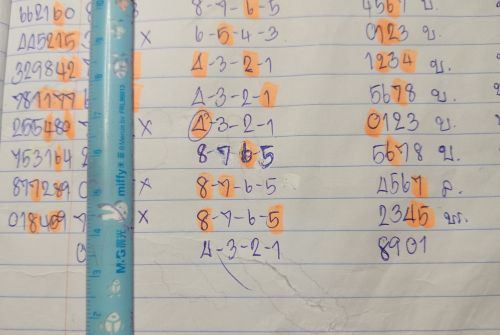 662160 8-7-6-5 4567 ข.
445215 X 6-5-4-3 0123 ข.
329842 7 4-3-2-1 1234 ข.
781177 4-3-2-1 5678 ข.
255480 7 X 4-3-2-1 0123 ข.
753164 2 8-7-6-5 5678 ข.
877289 0 X 8-7-6-5 4567
018409 7 X 8-7-6-5 2345
0 4-3-2-1 8901
miffy
M&G 晨光